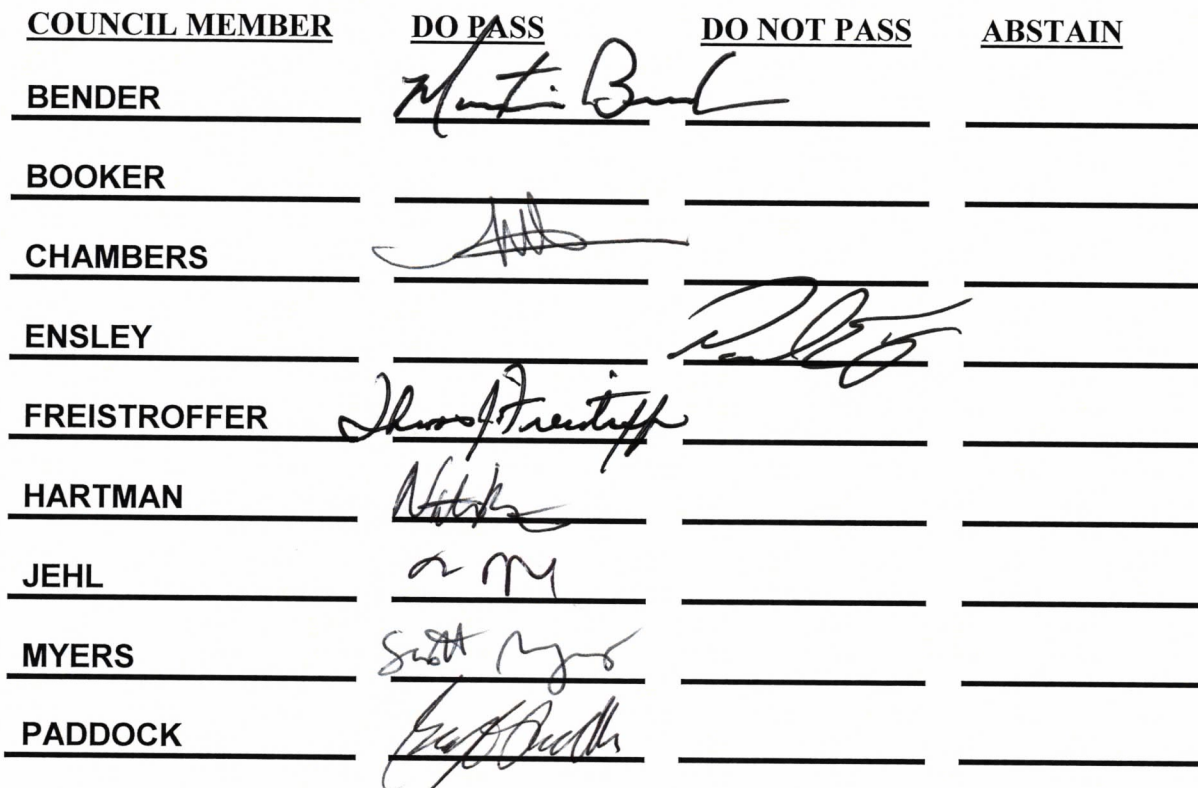 COUNCIL MEMBER DO PASS DO NOT PASS ABSTAIN
BENDER Martin Bend
BOOKER
CHAMBERS
ENSLEY
FREISTROFFER Thomas J Freistroffer
HARTMAN
JEHL
MYERS Scott Myers
PADDOCK